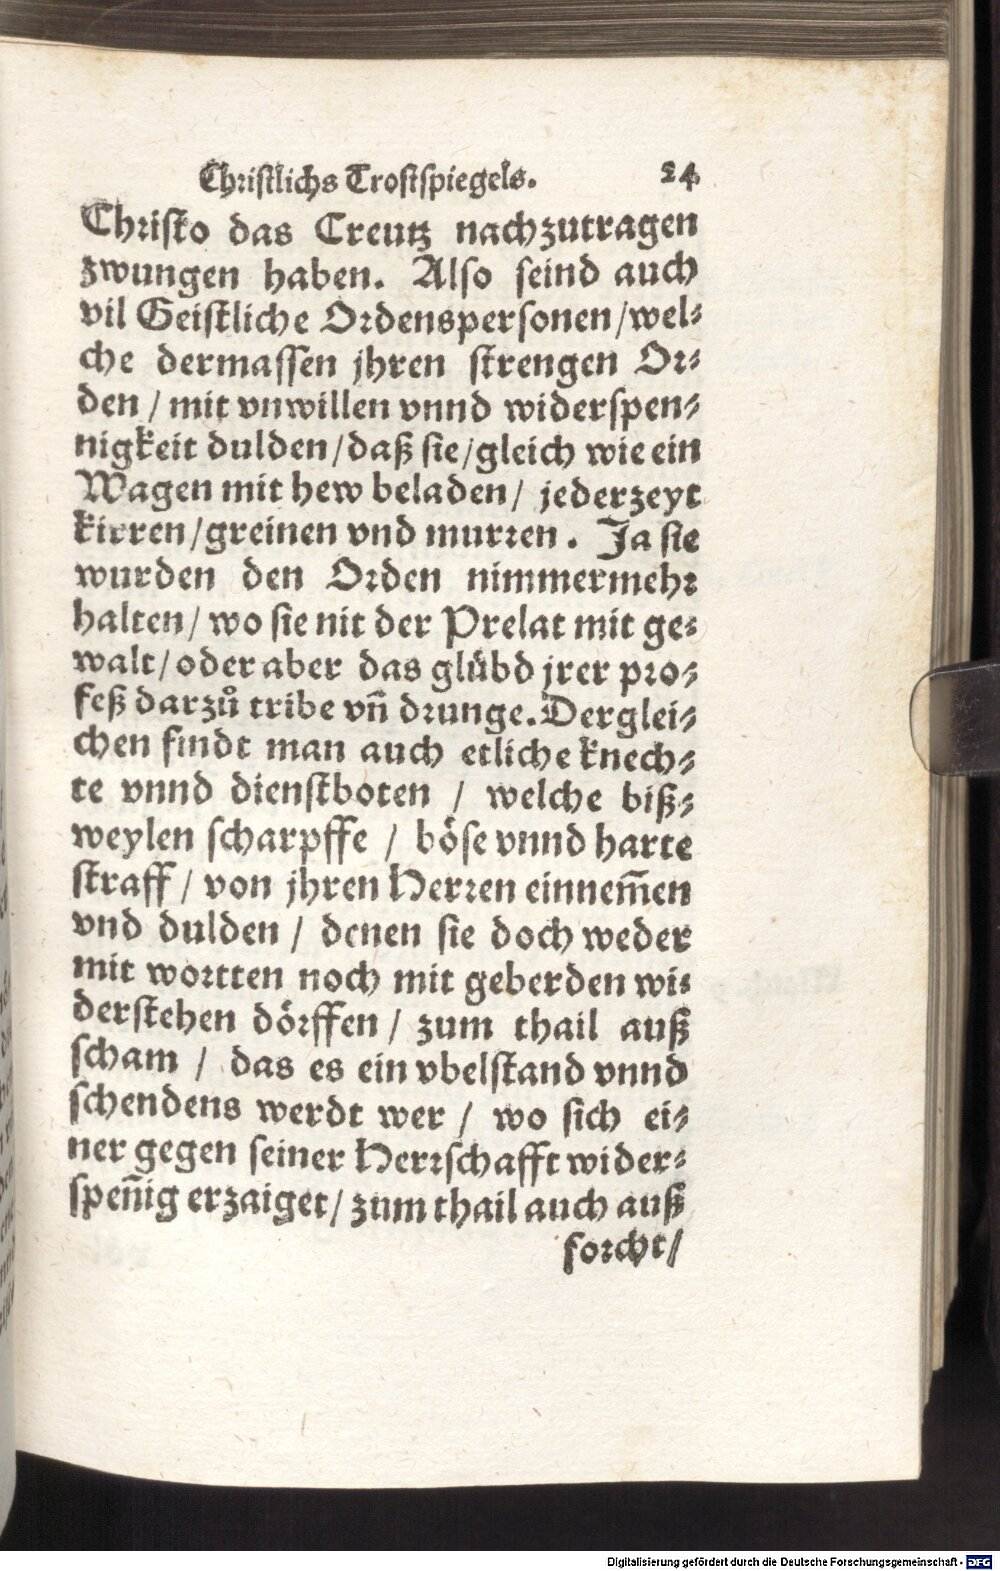 Christlichs Trostspiegels. 24
Christo das Creutz nachzutragen
zwungen haben. Also seind auch
vil Geistliche Ordenspersonen/wel-
che dermassen jhren strengen Or-
den / mit vnwillen vnnd widerspen-
nigkeit dulden/daß sie/gleich wie ein
Wagen mit hew beladen/ jederzeyt
kirren/greinen vnd murren. Ja sie
wurden den Orden nimmermehr
halten/ wo sie nit der Prelat mit ge-
walt/oder aber das glübd jrer pro-
feß darzuͦ tribe vñ drunge. Derglei-
chen findt man auch etliche knech-
te vnnd dienstboten / welche biß-
weylen scharpffe / böse vnnd harte
straff / von jhren Herren einnem̃en
vnd dulden / denen sie doch weder
mit wortten noch mit geberden wi-
derstehen dörffen / zum thail auß
scham / das es ein vbelstand vnnd
schendens werdt wer / wo sich ei-
ner gegen seiner Herrschafft wider-
spen̄ig erzaiget/ zum thail auch auß
forcht/
Digitalisierung gefördert durch die Deutsche Forschungsgemeinschaft - DFG